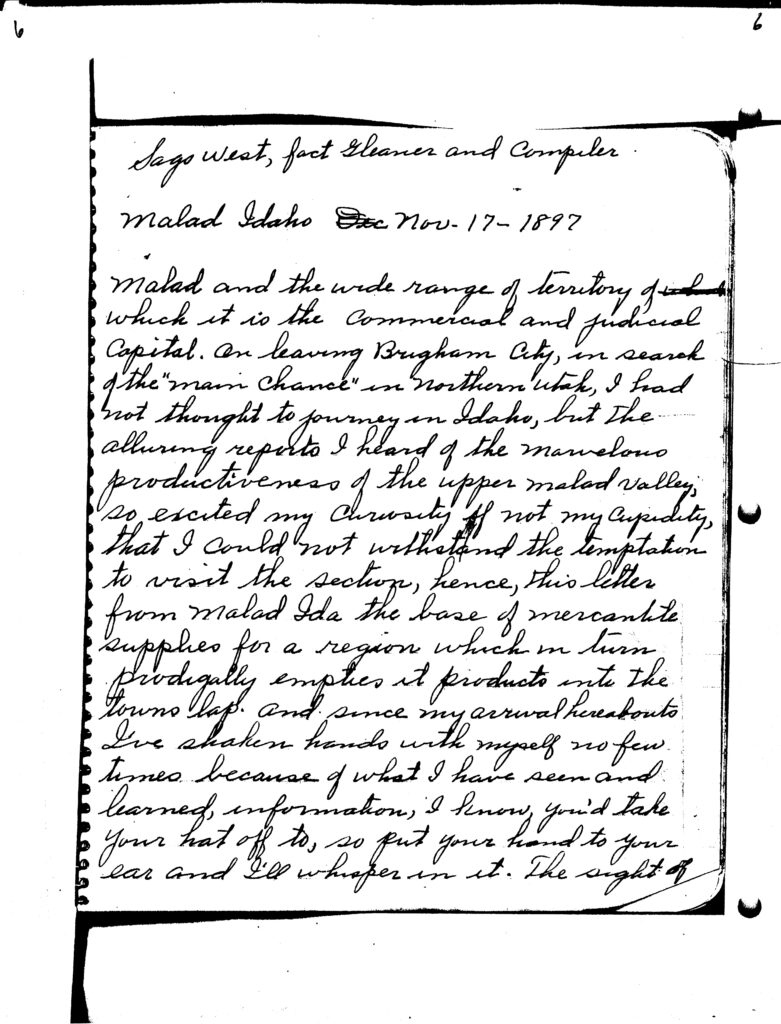 6
6
Sago West, fact Gleaner and Compiler
Malad Idaho Dec Nov. 17 - 1897
Malad and the wide range of territory of
which it is the Commercial and judicial
Capital. On leaving Brigham City, in search
of the "main Chance" in Northern Utah, I had
not thought to journey in Idaho, but the
alluring reports I heard of the marvelous
productiveness of the upper Malad Valley,
so excited my Curiosity if not my Cupidity,
that I could not withstand the temptation
to visit the section, hence, this letter
from Malad Ida the base of mercantile
supplies for a region which in turn
prodigally empties it products into the
towns lap. And since my arrival hereabouts
I've shaken hands with myself no few
times because of what I have seen and
learned, information, I know, you'd take
your hat off to, so put your hand to your
ear and I'll whisper in it. The sight of